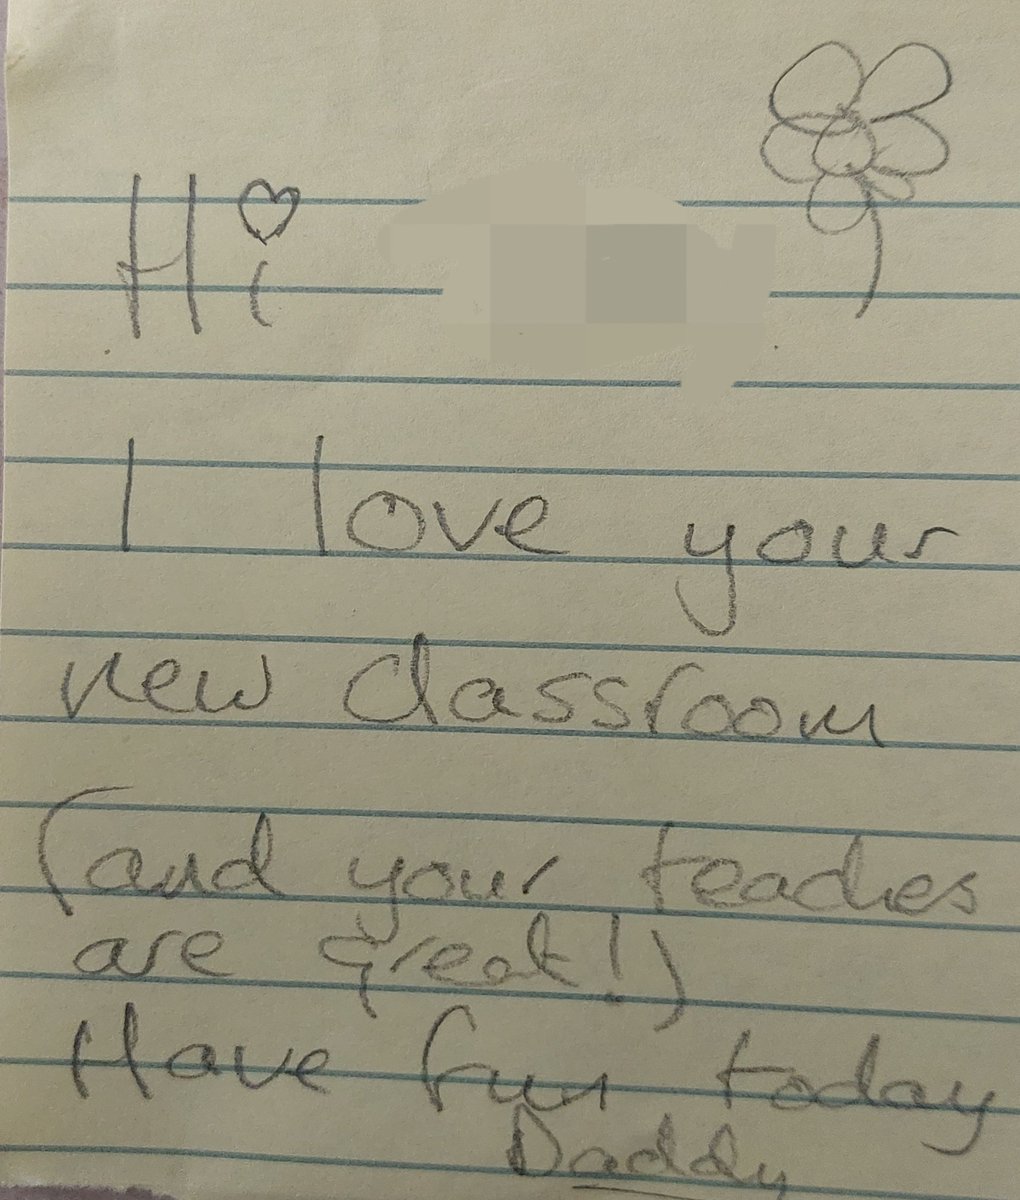 Hi
I love your
new classroom
(and your teaches
are great!)
Have fun today
Daddy